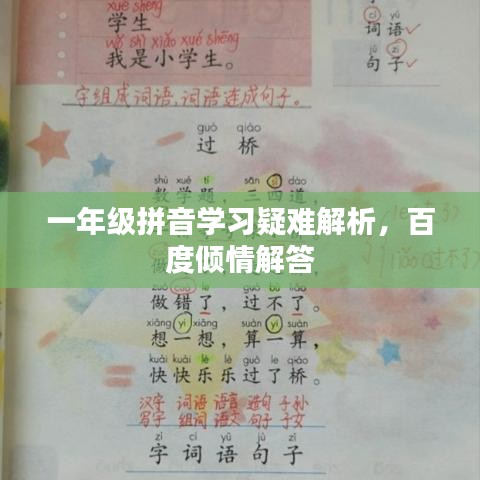 xué shēng
学生
wǒ shì xiǎo xué shēng
我是小学生。
cí yǔ
词语
jù zi
句子
字组成词语，词语连成句子。
guò qiáo
过桥
shù xué tí sān sì dào
数学题，三四道，
一年级拼音学习疑难解析，百
度倾情解答
做错了，过不了。
xiǎng yì xiǎng suàn yí suàn
想一想，算一算，
kuài kuài lè lè guò le qiáo
快快乐乐过了桥。
汉字 词语 语言 造句 子孙
写字 组词 语文 句子 子女
zì cí yǔ jù zi
字词语句子